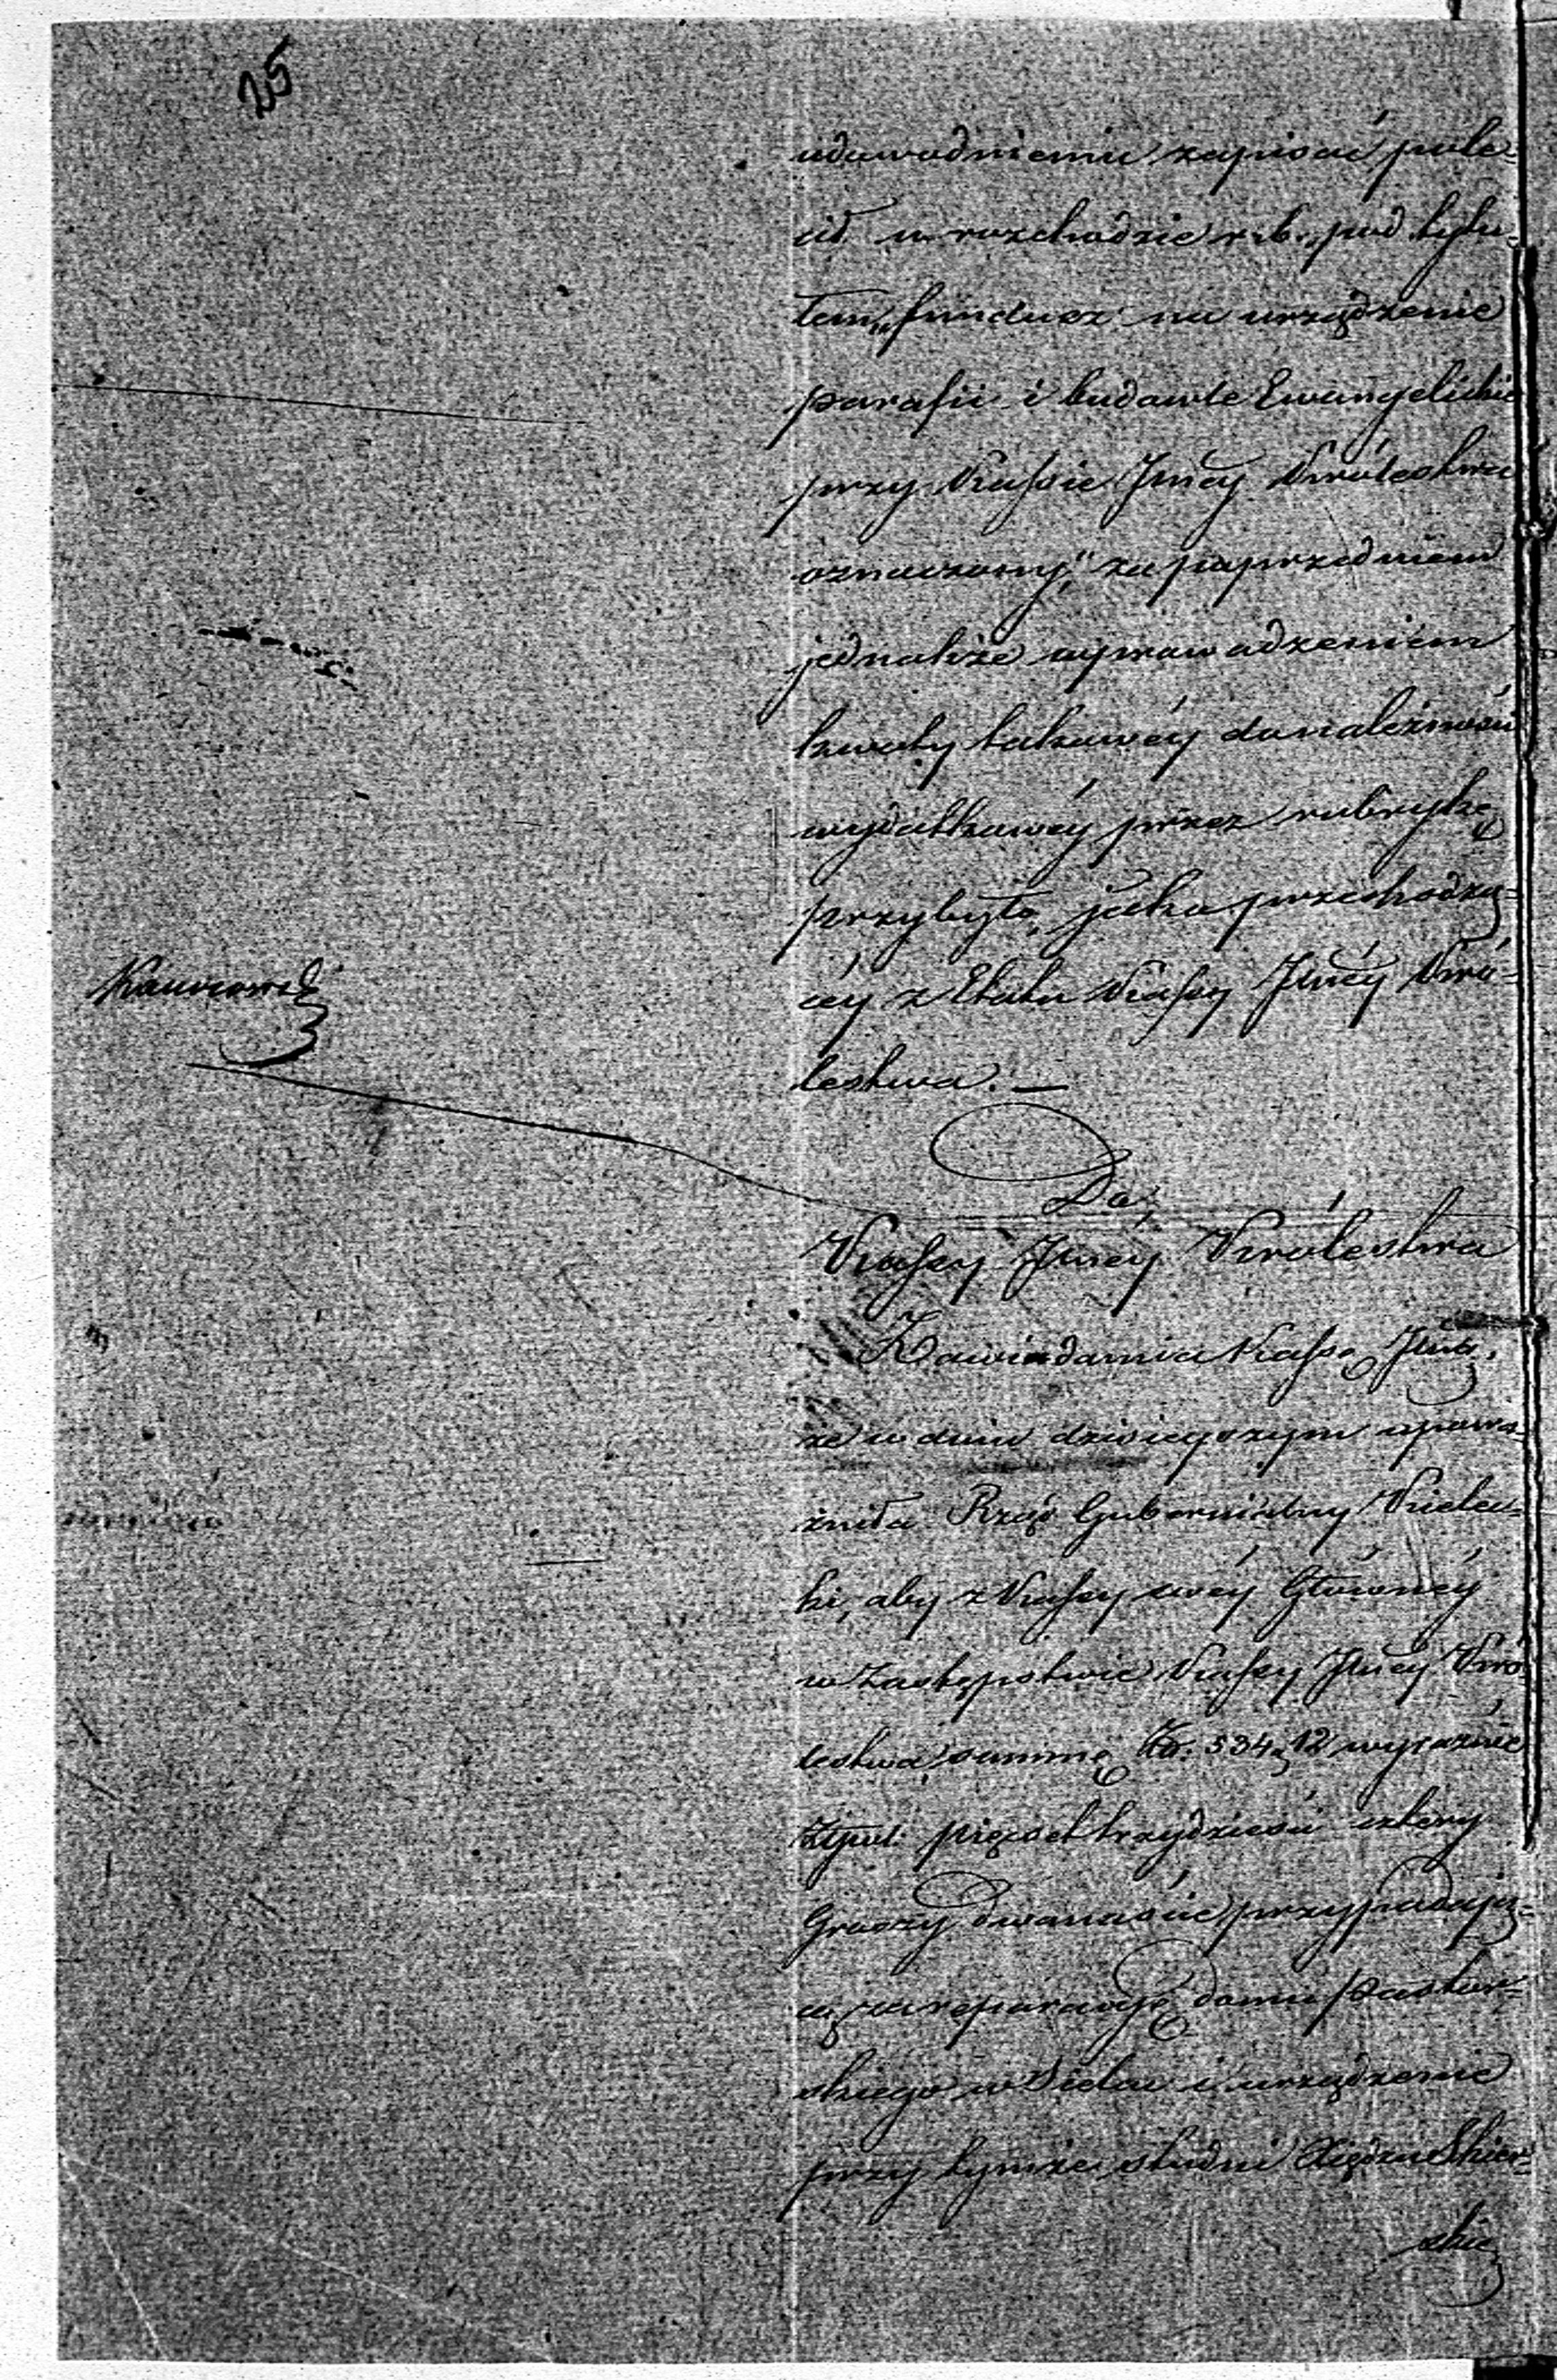 25
udowodnieniu zapisać pole-
cił w rozchodzie r. b. „pod tytu-
łem „fundusz na urządzenie
parafii i budowle Ewangelickie
przy Kassie Jlnéy Królestwa
oznaczony," za poprzedniem
jednakże wyprowadzeniem
kwoty takowéy do należności
wydatkowéy przez rubrykę
przybyło, jako przechodzą-
céy z Etatu Kassy Jlnéy Kró-
lestwa. —
Do
Kassy Jlnéy Królestwa
Zawiadamia Kassę Jlną,
że w dniu dzisieyszym upowa-
żniła Rząd Gubernialny Kielec-
ki, aby z Kassy swéy Głównéy
w Zastępstwie Kassy Jlnéy Kró-
lestwa, summę Złt. 534, 12 wyraźnie
Złpol. pięćset trzydzieści cztery
Groszy dwanaście przypadają-
cą za reparacyę domu Pastor-
skiego w Sielcu i urządzenie
przy tymże studni Xiędzu Skier-
skie